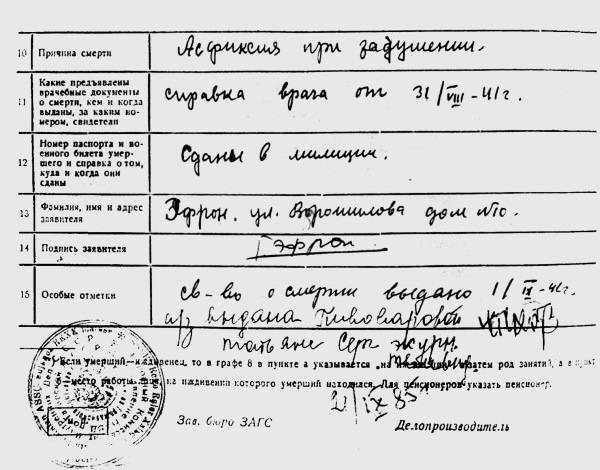 10 Причина смерти Асфиксия при задушении.
11 Какие предъявлены
врачебные документы
о смерти, кем и когда
выданы, за каким но-
мером, свидетели
справка врача от 31/VIII - 41 г.
12 Номер паспорта и во-
енного билета умер-
шего и справка о том,
куда и когда они
сданы
Сданы в милицию.
13 Фамилия, имя и адрес
заявителя
Эфрон, ул. Ворошилова дом №10.
14 Подпись заявителя Г Эфрон
15 Особые отметки св-во о смерти выдано 1/IX - 41г.
выдана Пивоваровой
Татьяне
Если умерший иждивенец, то в графе 8 в пункте а указывается „на затем род занятий, а в пункт
место работы лица, на иждивении которого умерший находился. Для пенсионеров указать пенсионер.
IX 85
Зав. бюро ЗАГС Делопроизводитель